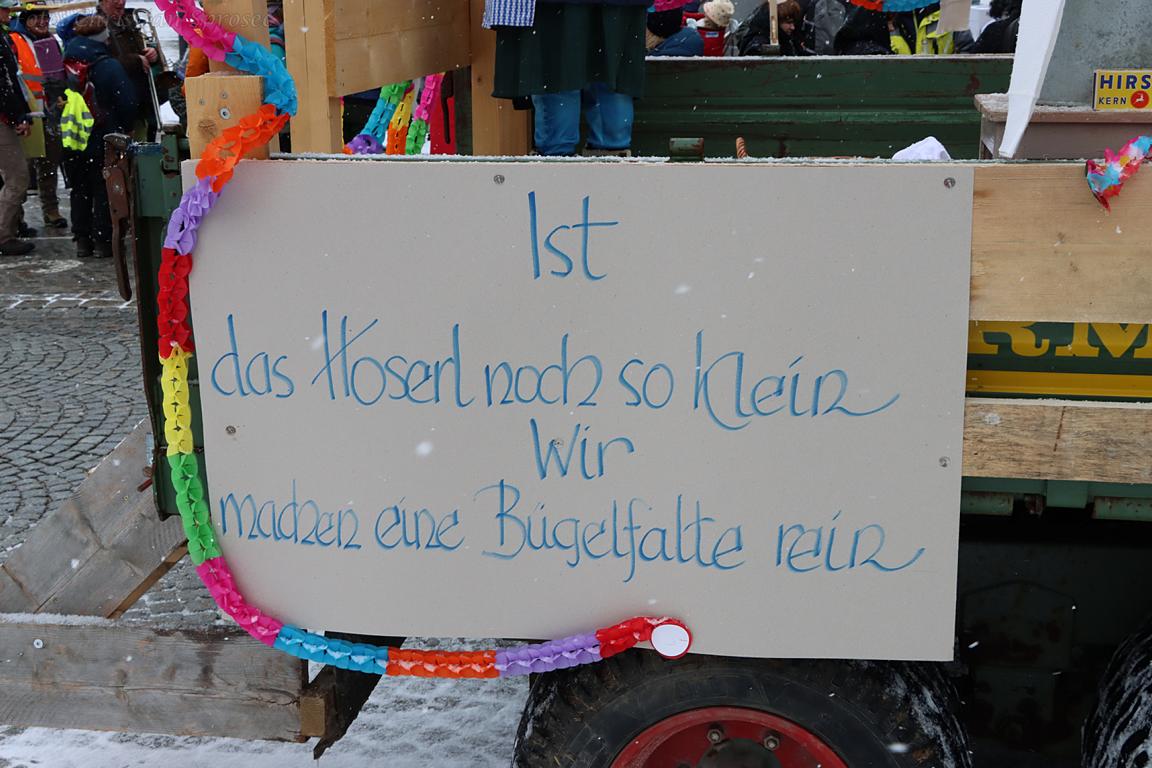 HIRS
KERN
Ist
das Hoserl noch so klein
Wir
machen eine Bügelfalte rein